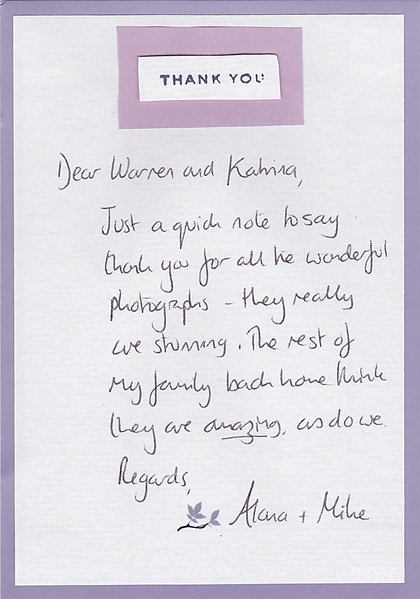 THANK YOU
Dear Warren and Katrina,
Just a quick note to say
thank you for all the wonderful
photographs - they really
are stunning. The rest of
my family back home think
they are amazing, as do we.
Regards,
Alana + Mike